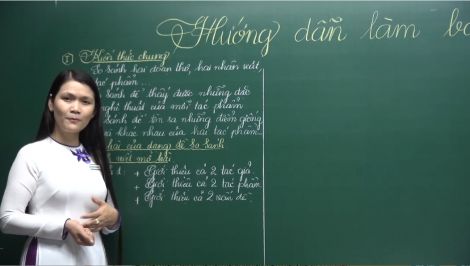 Hướng dẫn làm b
I Kiến thức chung
So sánh hai đoạn thơ, hai nhân vật,
tác phẩm...
sánh để thấy được những đặc
nghệ thuật của mỗi tác phẩm
sánh để tìm ra những điểm giống
khác nhau của hai tác phẩm
của dạng đề so sánh
viết mở bài
1: + Giới thiệu cả 2 tác giả
+ Giới thiệu cả 2 tác phẩm
+ Giới thiệu cả 2 vấn đề